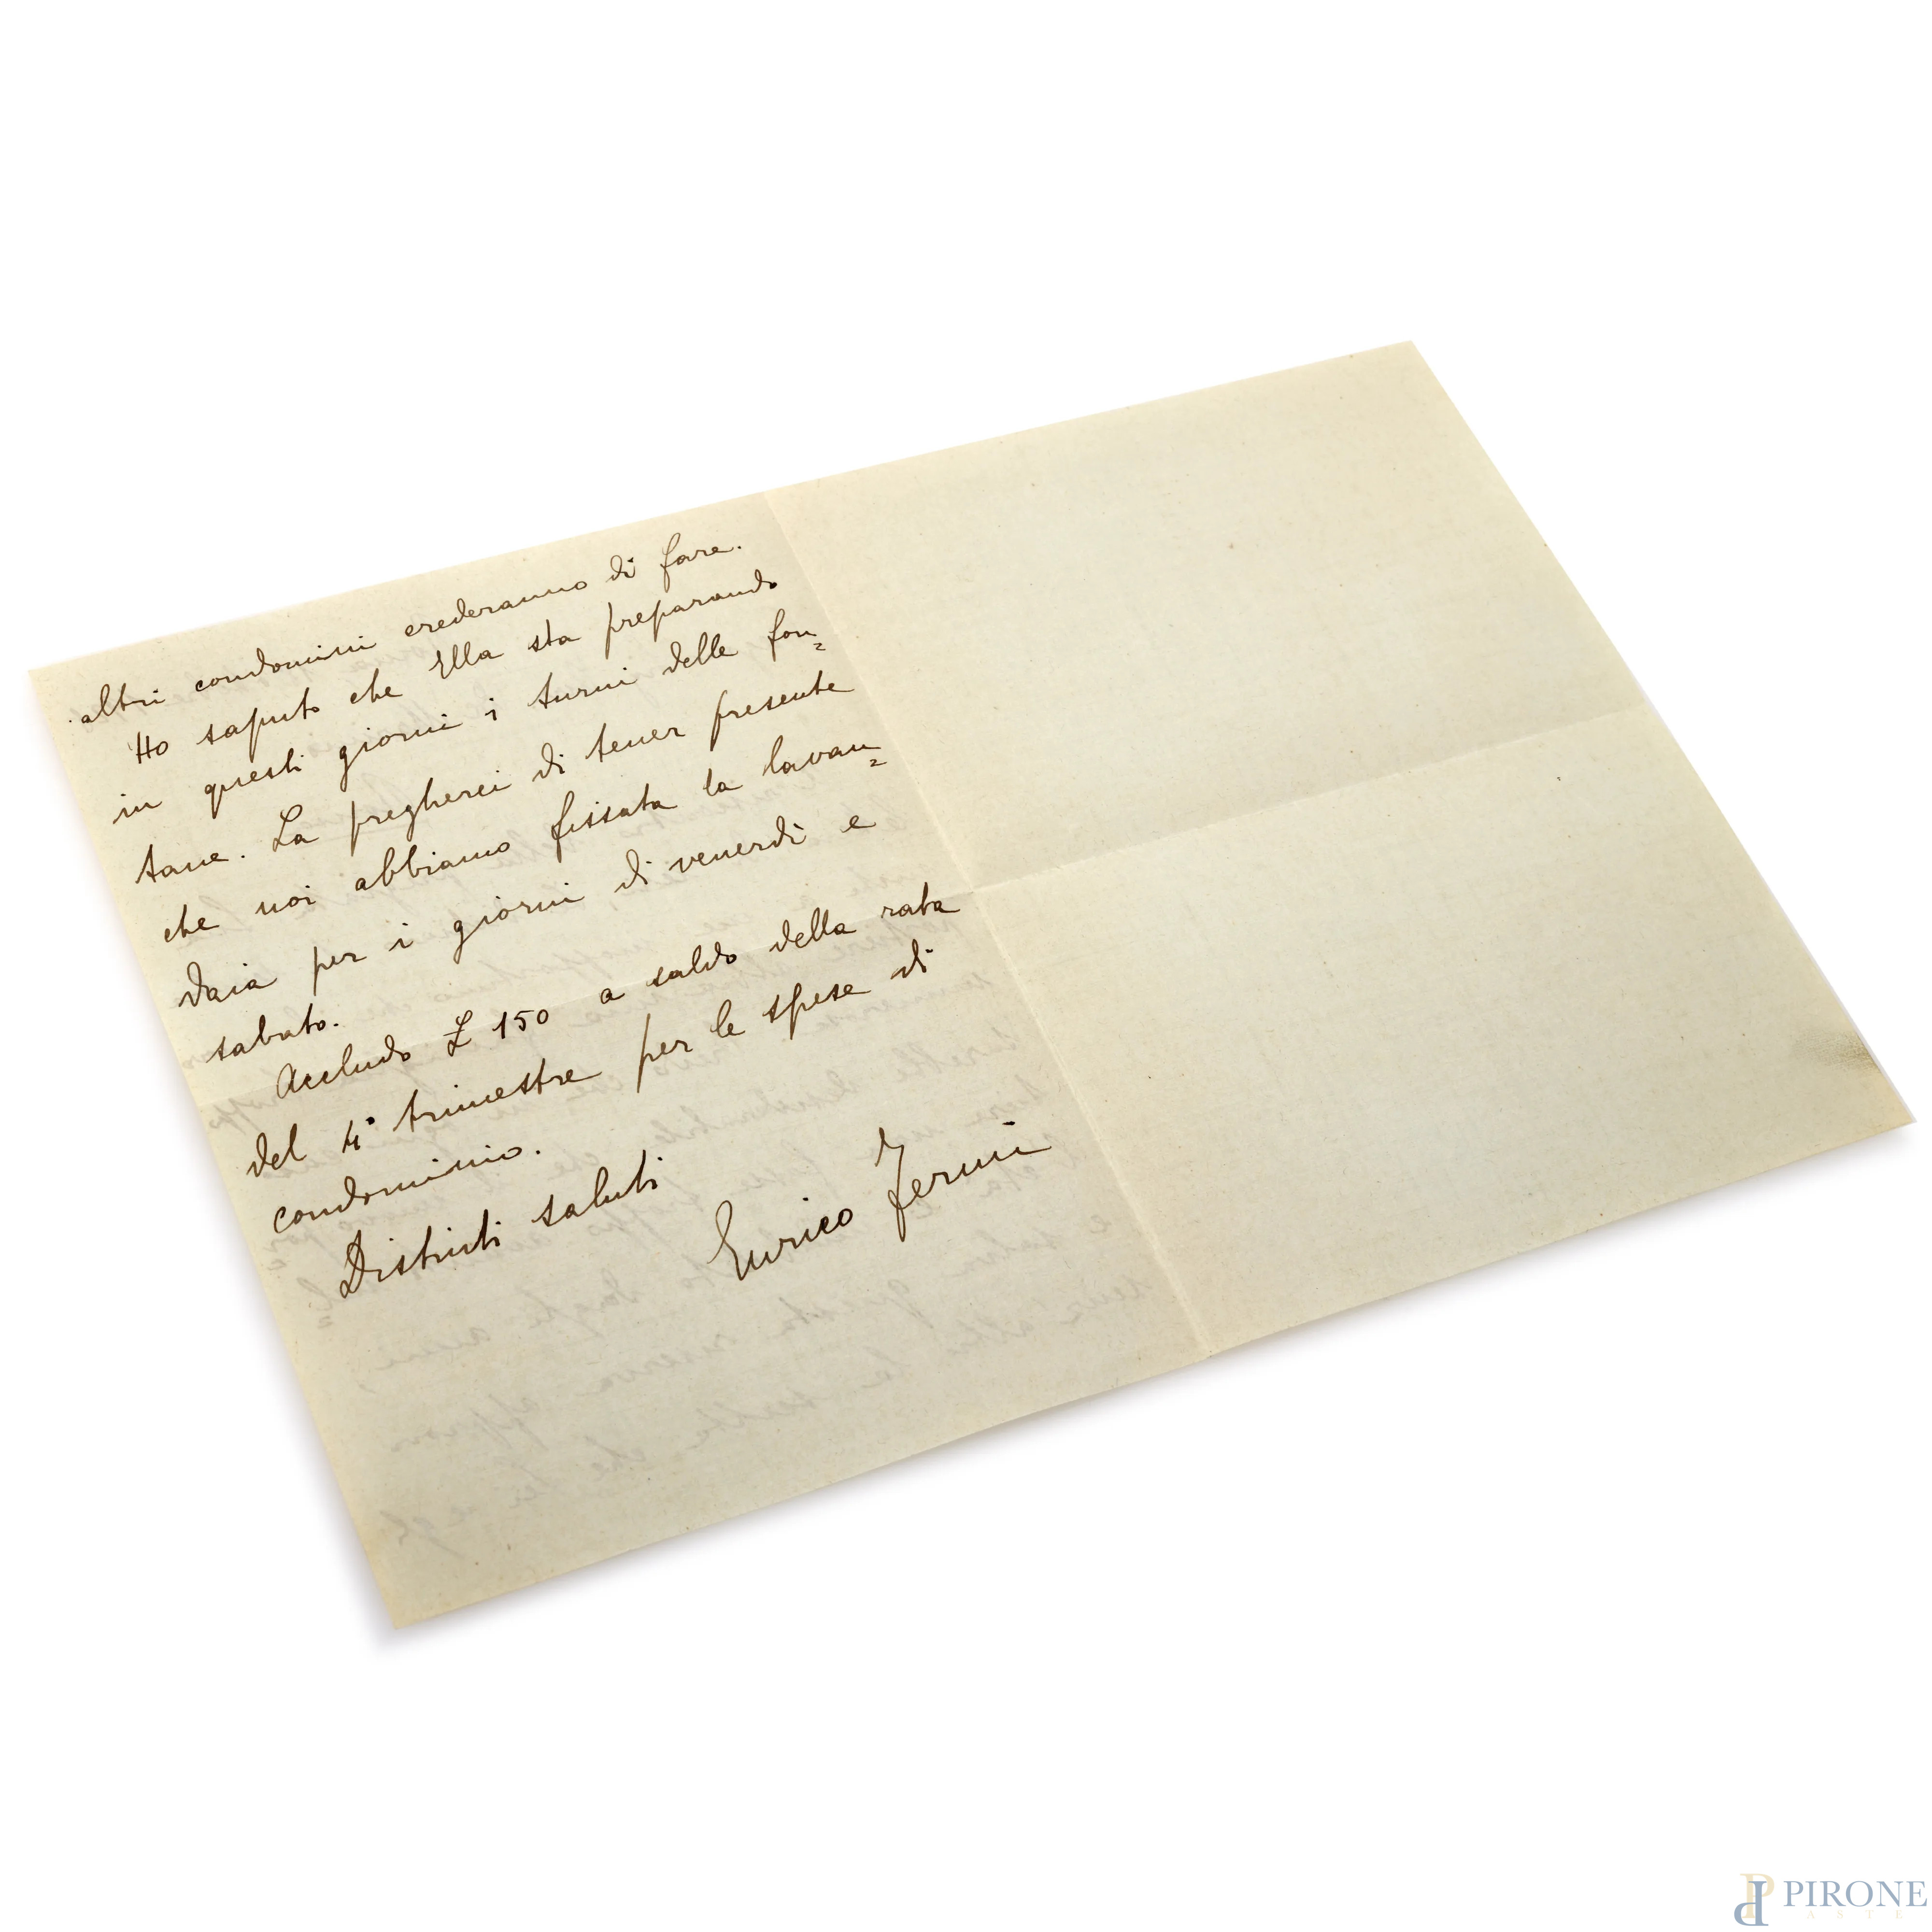 altri condomini crederanno di fare.
Ho saputo che Ella sta preparando
in questi giorni i turni delle fon=
tane. La pregherei di tener presente
che noi abbiamo fissata la lavan=
daia per i giorni di venerdì e
sabato.
Accludo £ 150 a saldo della rata
del 4° trimestre per le spese di
condominio.
Distinti saluti
Enrico Fermi
PIRONE
ASTE